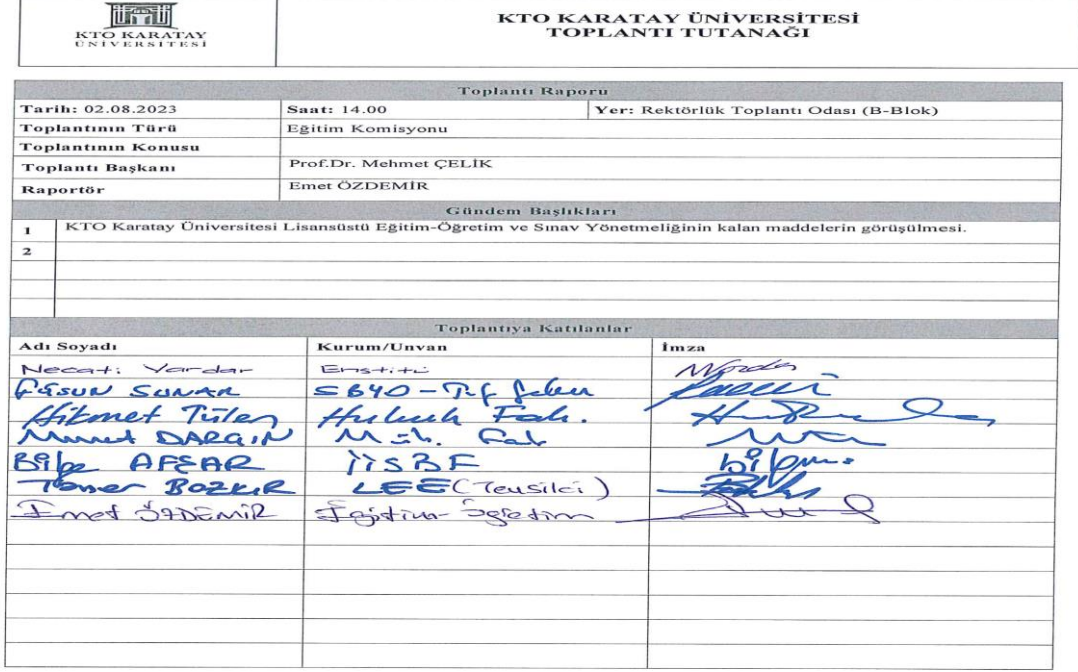 KTO KARATAY
ÜNİVERSİTESİ
KTO KARATAY ÜNİVERSİTESİ
TOPLANTI TUTANAĞI
Toplantı Raporu
Tarih: 02.08.2023 Saat: 14.00 Yer: Rektörlük Toplantı Odası (B-Blok)
Toplantının Türü Eğitim Komisyonu
Toplantının Konusu
Toplantı Başkanı Prof.Dr. Mehmet ÇELİK
Raportör Emet ÖZDEMİR
Gündem Başlıkları
1 KTO Karatay Üniversitesi Lisansüstü Eğitim-Öğretim ve Sınav Yönetmeliğinin kalan maddelerin görüşülmesi.
2
Toplantıya Katılanlar
Adı Soyadı Kurum/Unvan İmza
Necati Vardar Enstitü
Füsun SUNAR SBYO -
Hikmet Tülen Hukuk Fak.
Murat DARGIN Müh. Fak
Bilge AFŞAR İİSBF
Tamer BOZKIR LEE (Temsilci)
Emet ÖZDEMİR Eğitim-Öğretim